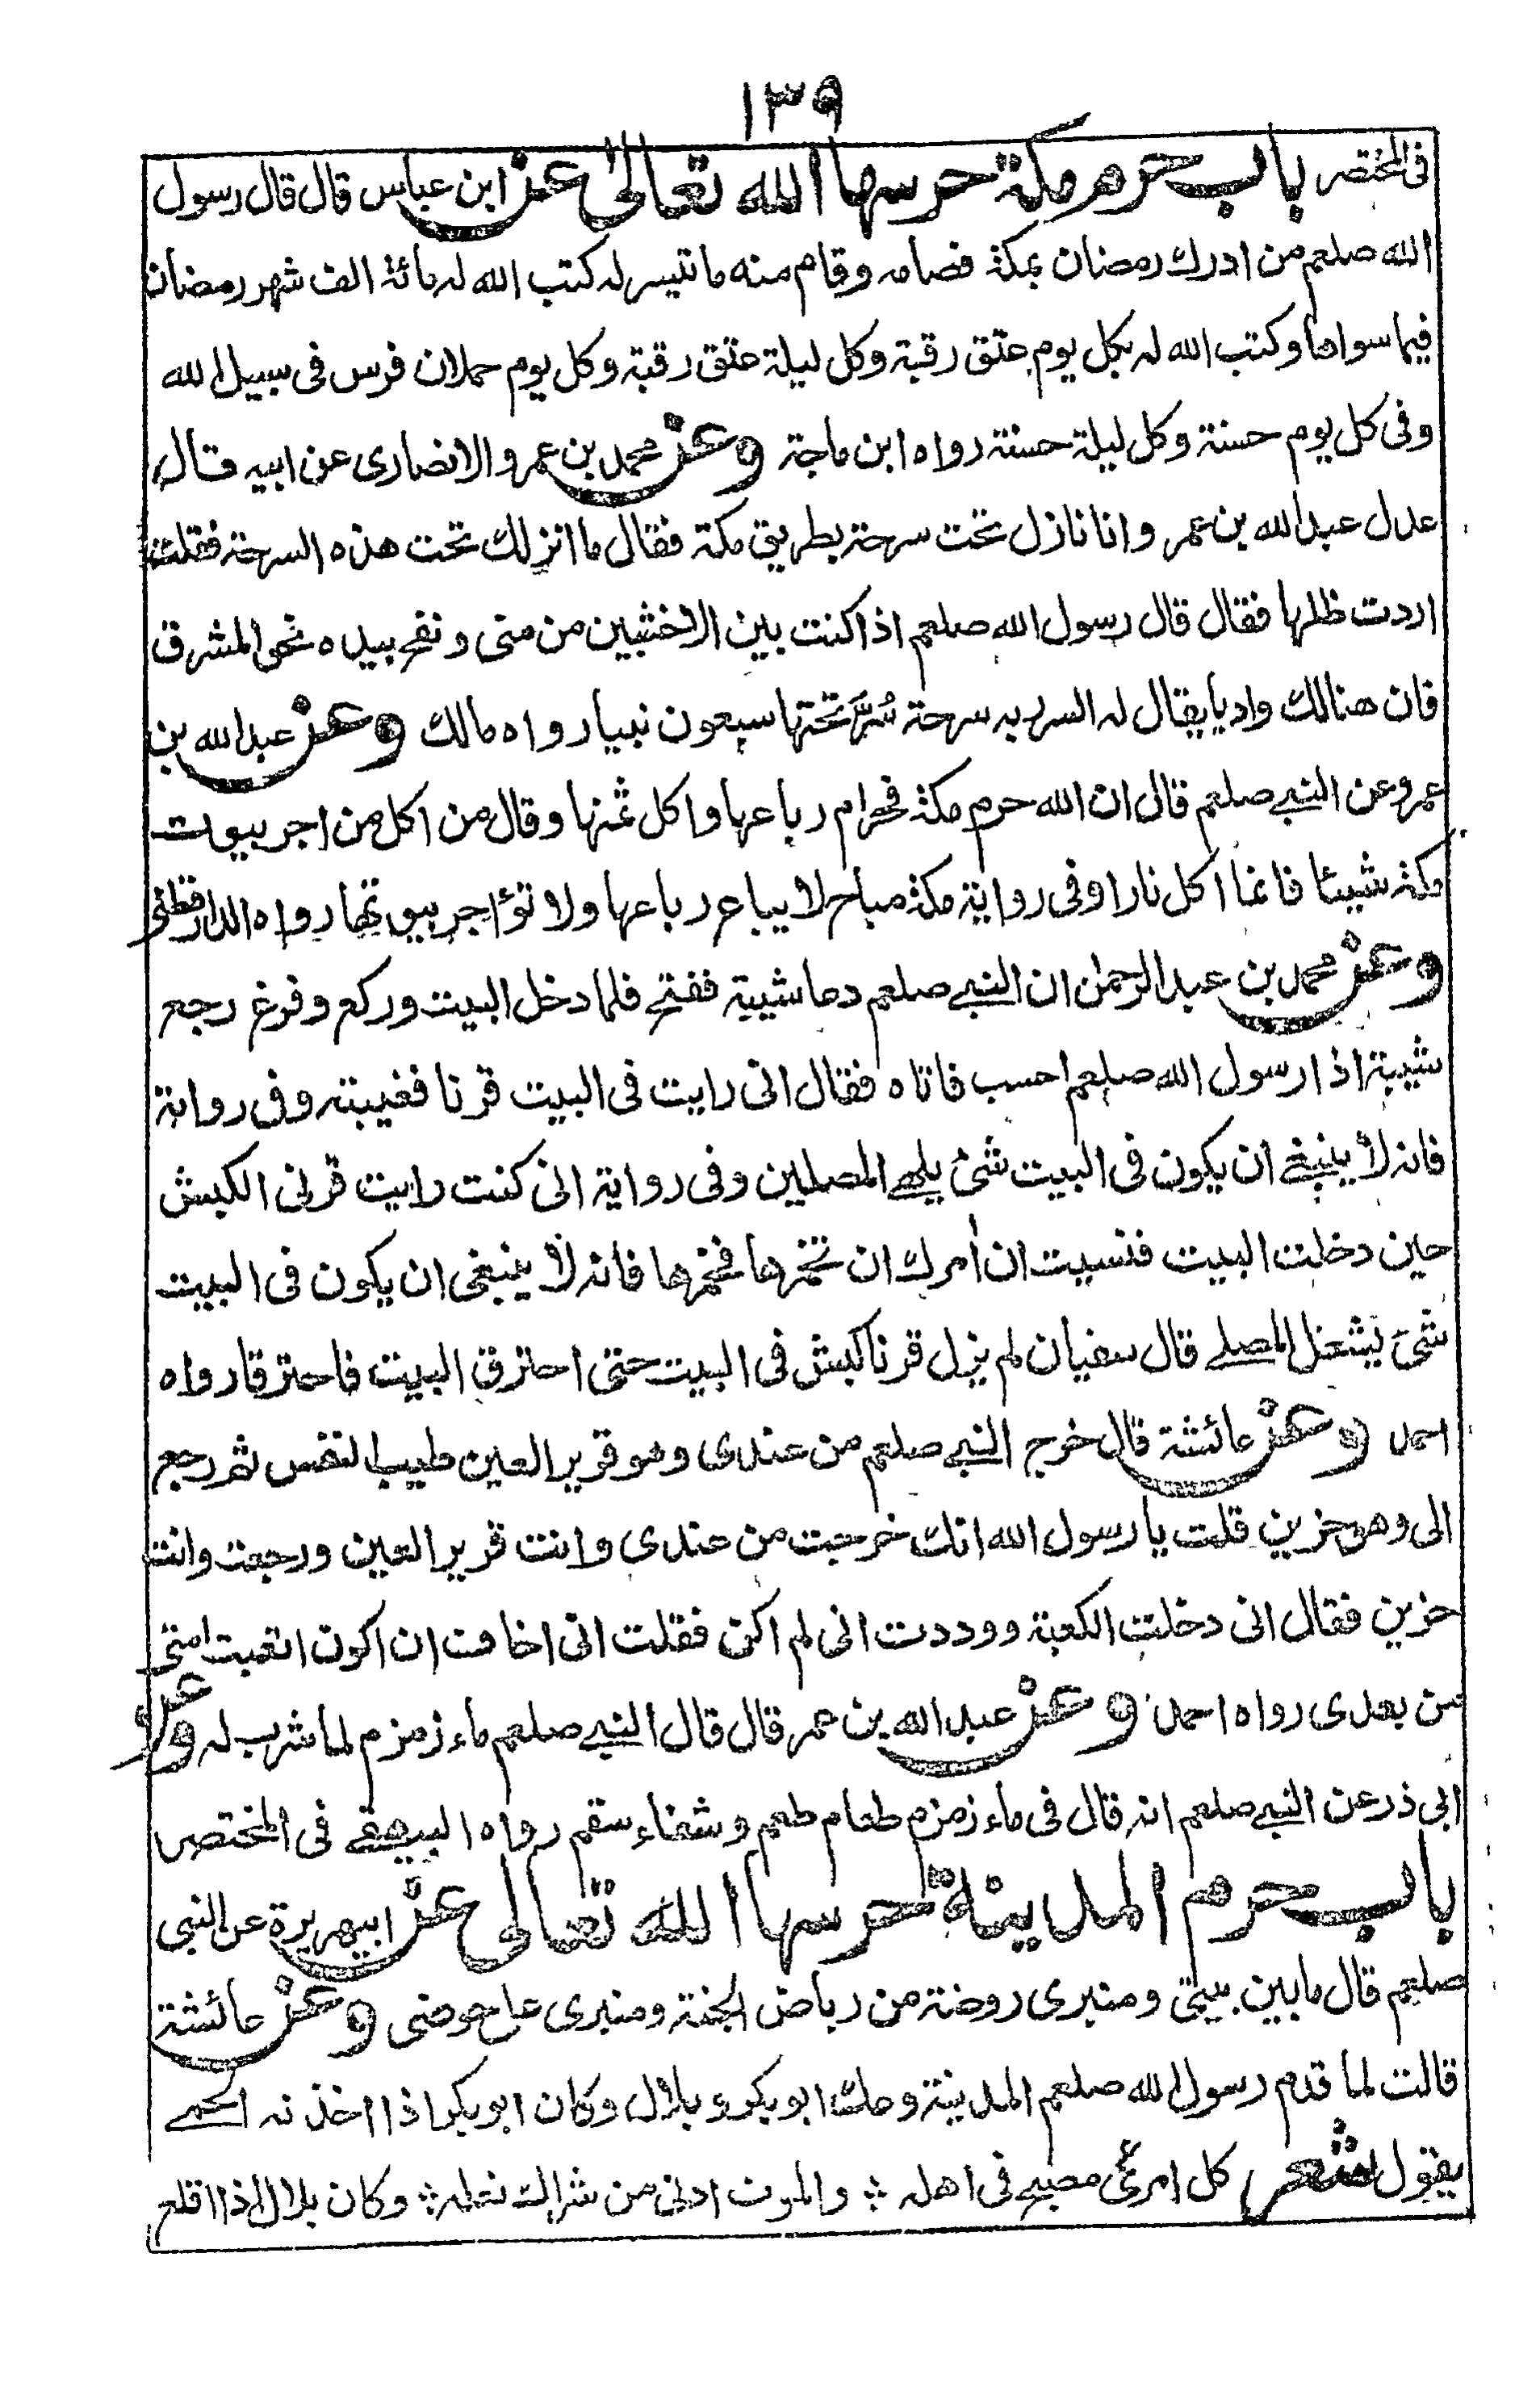 ١٣٩
فى المختصر باب حرم مكة حرسها الله تعالى عن ابن عباس قال قال رسول
الله صلعم من ادرك رمضان بمكة فصامه وقام منه ما تيسر له كتب الله له مائة الف شهر رمضان
فيما سواها وكتب الله له بكل يوم عتق رقبة وكل ليلة عتق رقبة وكل يوم حملان فرس فى سبيل الله
وفى كل يوم حسنة وكل ليلة حسنة رواه ابن ماجة وعن محمد بن عمرو الانصارى عن ابيه قال
عدل عبد الله بن عمر وانا نازل تحت سرحة بطريق مكة فقال ما انزلك تحت هذه السرحة فقلت
اردت ظلها فقال قال رسول الله صلعم اذا كنت بين الاخشبين من منى ونفح بيده نحو المشرق
فان هنالك واديا يقال له السربه سرحة سُرَّ تحتها سبعون نبيا رواه مالك وعن عبد الله بن
عمرو عن النبي صلعم قال ان الله حرم مكة فحرام رباعها واكل ثمنها وقال من اكل من اجر بيوت
مكة شيئا فانما اكل نارا وفى رواية مكة مباح لا يباع رباعها ولا تؤاجر بيوتها رواه الدارقطنى
وعن محمد بن عبد الرحمن ان النبي صلعم دعا شيبة ففتح فلما دخل البيت وركع وفرغ رجع
شيبة اذا رسول الله صلعم احسب فاتاه فقال انى رايت فى البيت قرنا فغيبته وفى رواية
فانه لا ينبغي ان يكون فى البيت شئ يلهي المصلين وفى رواية انى كنت رايت قرنى الكبش
حين دخلت البيت فنسيت ان اٰمرك ان تخمرها فخمرها فانه لا ينبغى ان يكون فى البيت
شئ يشغل المصلي قال سفيان لم يزل قرنا كبش فى البيت حتى احترق البيت فاحترقا رواه
احمد وعن عائشة قال خرج النبي صلعم من عندى وهو قرير العين طيب النفس ثم رجع
الى وهو حزين قلت يا رسول الله انك خرجت من عندى وانت قرير العين ورجعت وانت
حزين فقال انى دخلت الكعبة ووددت انى لم اكن فقلت انى اخاف ان اكون اتعبت امتى
من بعدى رواه احمد وعن عبد الله بن عمر قال قال النبي صلعم ماء زمزم لما شرب له وعن
ابى ذر عن النبي صلعم انه قال فى ماء زمزم طعام طعم وشفاء سقم رواه البيهقي فى المختصر
باب حرم المدينة حرسها الله تعالى عن ابيهريرة عن النبى
صلعم قال ما بين بيتى ومنبرى روضة من رياض الجنة ومنبرى على حوضى وعن عائشة
قالت لما قدم رسول الله صلعم المدينة وعك ابو بكر وبلال وكان ابو بكر اذا اخذته الحمي
يقول شعر كل امرئ مصبح فى اهله والموت ادنى من شراك نعله وكان بلال اذا اقلع